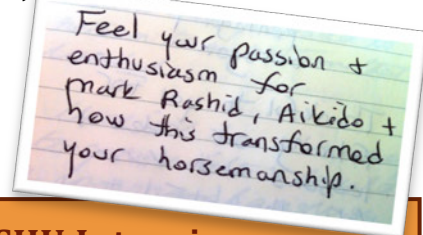 Feel your passion +
enthusiasm for
Mark Rashid, Aikido +
how this transformed
your horsemanship.